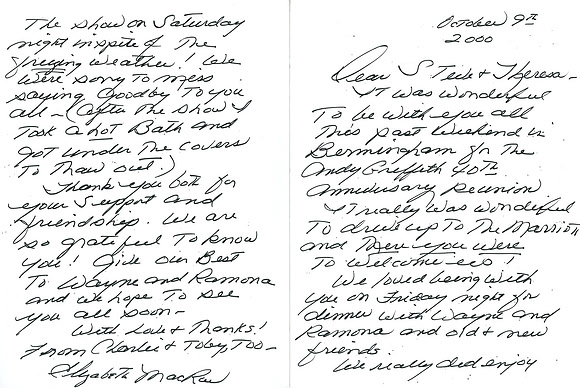 October 9th
2000
Dear Steve & Theresa-
It was wonderful
To be with you all
This past weekend in
Bermingham for The
Andy Griffith 40th
Anniversary Reunion
It really was wonderful
To drive up To The Marriott
and There you were
To welcome us!
We loved being with
you on Friday night for
dinner with Wayne and
Ramona and old & new
friends.
We really did enjoy
The show on Saturday
night inspite of The
freezing weather! We
were sorry To miss
saying Goodby To you
all - (after The show I
Took a hot Bath and
got under The covers
To Thaw out!)
Thank you both for
your support and
friendship. We are
so grateful To know
you! Give our Best
To Wayne and Ramona
and we hope To see
you all soon-
With Love & Thanks!
From Charlie & Toby, Too-
Elizabeth MacRae